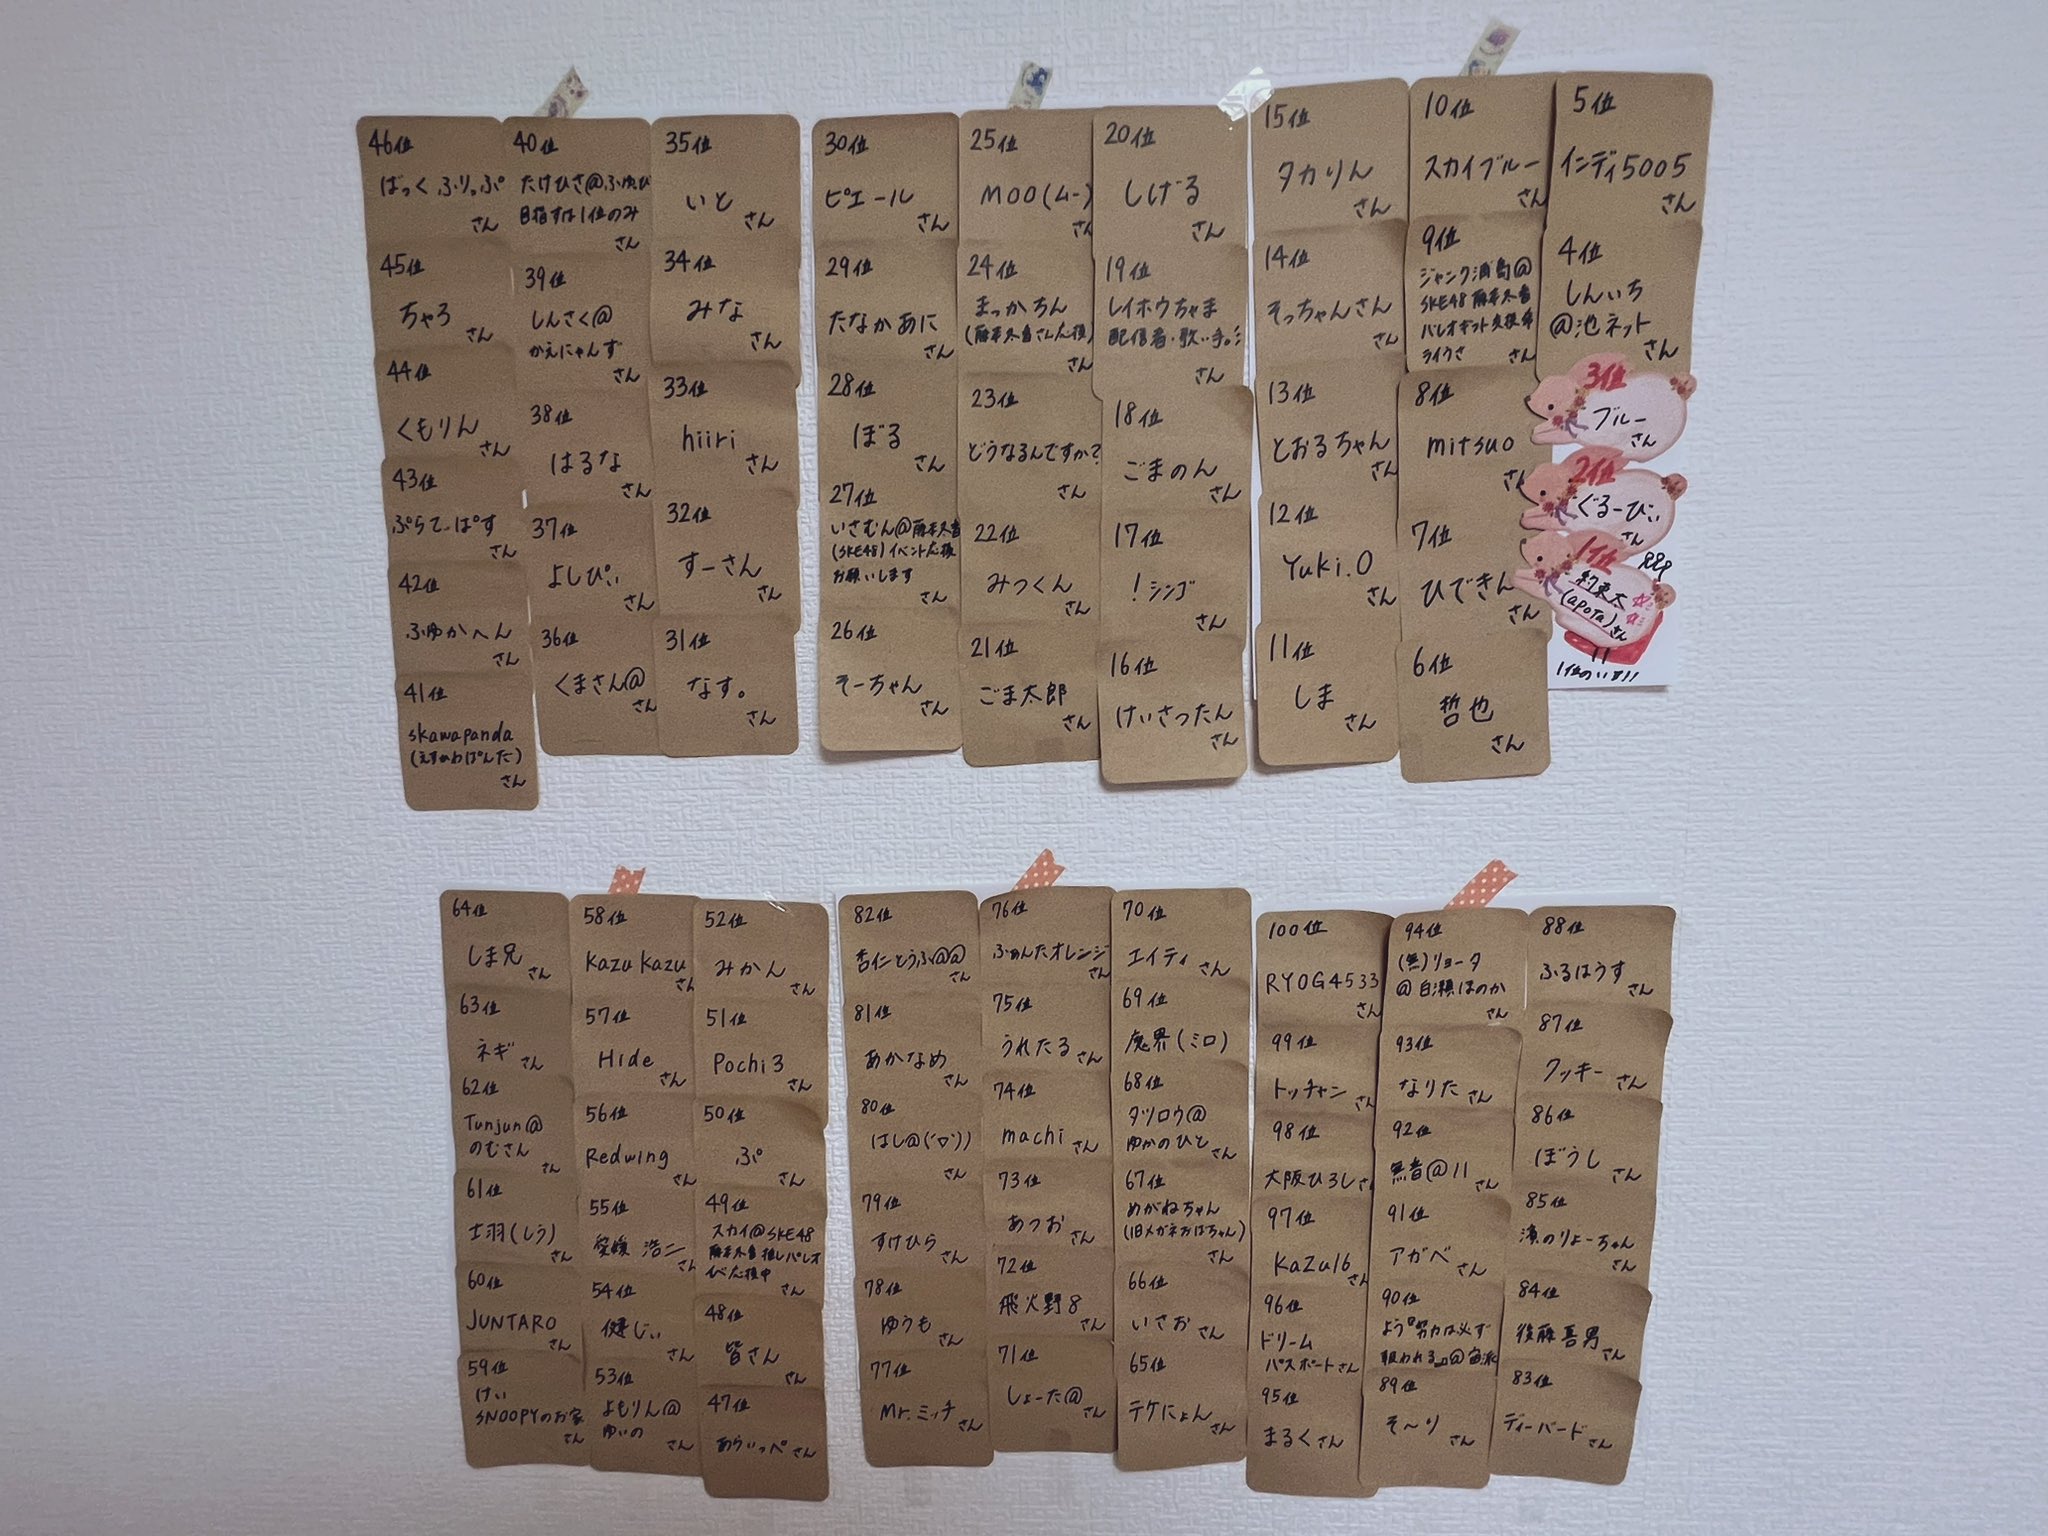 46位
ばっくふりっぷ
さん
45位
ちゃろ
さん
44位
くもりん
さん
43位
ぷらてーぱす
さん
42位
ふゆかへん
さん
41位
skawapanda
(えすかわぱんだ)
さん
40位
たけひさ@ふゆぴ
目指すは1位のみ
さん
39位
しんさく@
かえにゃんず
さん
38位
はるな
さん
37位
よしぴぃ
さん
36位
くまさん@
さん
35位
いと
さん
34位
みな
さん
33位
hiiri
さん
32位
すーさん
さん
31位
なす。
さん
30位
ピエール
さん
29位
たなかあに
さん
28位
ぼる
さん
27位
いさむん@藤本冬香
(SKE48)イベント応援
お願いします
さん
26位
そーちゃん
さん
25位
MOO(ムー)
さん
24位
まっかちん
(藤本冬香さん応援)
さん
23位
どうなるんですか?
さん
22位
みつくん
さん
21位
ごま太郎
さん
20位
しげる
さん
19位
レイホウちゃま
配信者・歌い手。
さん
18位
ごまのん
さん
17位
!シンゴ
さん
16位
けいさつたん
さん
15位
タカりん
さん
14位
そっちゃんさん
さん
13位
とおるちゃん
さん
12位
Yuki.O
さん
11位
しま
さん
10位
スカイブルー
さん
9位
ジャンク浦島@
SKE48藤本冬香
パレオギャット支援
ライクさ
さん
8位
mitsuo
さん
7位
ひできん
さん
6位
哲也
さん
5位
インディ5005
さん
4位
しんいち
@池ネット
さん
3位
ブルー
さん
2位
ぐるーびぃ
さん
1位
約束太
(apota)さん
1位のいす!!
64位
しま兄
さん
63位
ネギ
さん
62位
Tunjun@
のむさん
さん
61位
士羽(しう)
さん
60位
JUNTARO
さん
59位
けい
SNOOPYのお家
さん
58位
Kazu Kazu
さん
57位
Hide
さん
56位
Redwing
さん
55位
愛媛 浩二
さん
54位
健じぃ
さん
53位
よもりん@
ゆいの
さん
52位
みかん
さん
51位
Pochi3
さん
50位
ぷ
さん
49位
スカイ@SKE48
藤本冬香推しパレオ
イベ応援中
さん
48位
皆さん
さん
47位
あらいっぺ
さん
82位
杏仁とうふ@@
さん
81位
あかなめ
さん
80位
はし@('ロ'))
さん
79位
すけひら
さん
78位
ゆうも
さん
77位
Mr.ミッチ
さん
76位
ふぁんたオレンジ
さん
75位
うれたる
さん
74位
machi
さん
73位
あつお
さん
72位
飛火野8
さん
71位
しょーた@
さん
70位
エイティ
さん
69位
魔界(ミロ)
68位
タツロウ@
ゆかのひと
さん
67位
めがねちゃん
(旧メガネおばちゃん)
さん
66位
いさお
さん
65位
テケにょん
さん
100位
RYOG4533
さん
99位
トッチャン
さん
98位
大阪ひろし
さん
97位
Kazu16
さん
96位
ドリーム
パスポート
さん
95位
まるく
さん
94位
(無)リョータ
@白瀬ほのか
さん
93位
なりた
さん
92位
無音@11
さん
91位
アガベ
さん
90位
よう『努力は必ず
報われる』@宙派
89位
そ〜り
さん
88位
ふるはうす
さん
87位
クッキー
さん
86位
ぼうし
さん
85位
濱のりょーちゃん
さん
84位
後藤吾男
さん
83位
ディーバード
さん